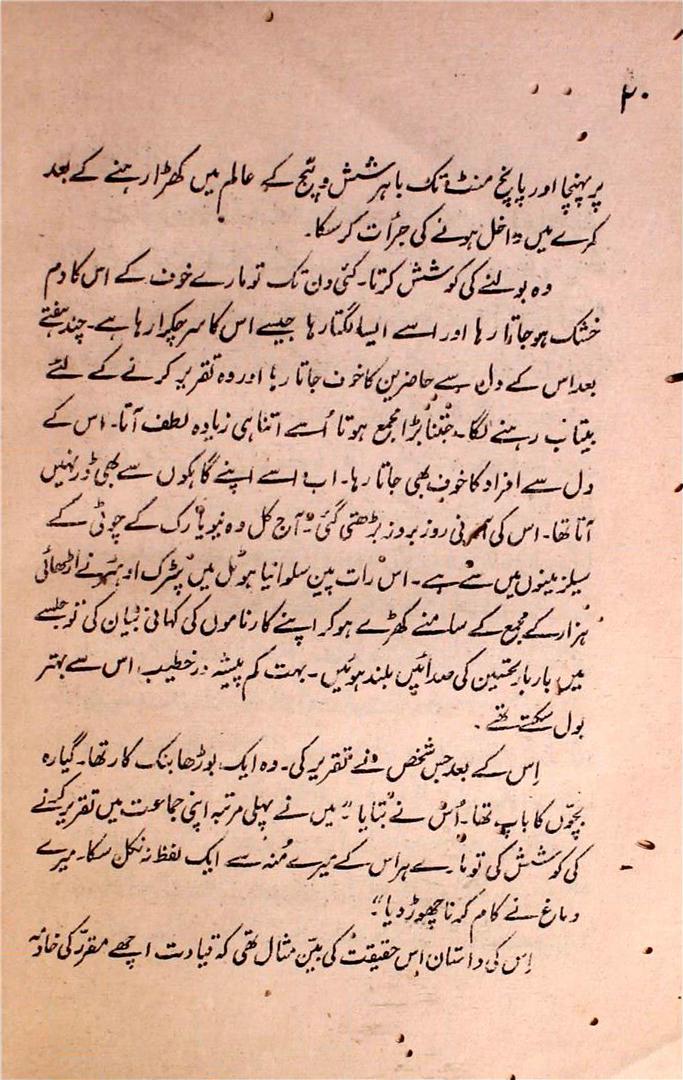 ۲۰
پر پہنچا اور پانچ منٹ تک باہر شش و پنج کے عالم میں کھڑا رہنے کے بعد
کمرے میں داخل ہونے کی جرأت کر سکا۔
وہ بولنے کی کوشش کرتا۔ کئی دن تک تو مارے خوف کے اس کا دم
خشک ہو جاتا رہا اور اسے ایسا لگتا رہا جیسے اس کا سر چکرا رہا ہے۔ چند ہفتے
بعد اس کے دل سے حاضرین کا خوف جاتا رہا اور وہ تقریر کرنے کے لئے
بیتاب رہنے لگا۔ جتنا بڑا مجمع ہوتا اُسے اتنا ہی زیادہ لطف آتا۔ اس کے
دل سے افراد کا خوف بھی جاتا رہا۔ اب اسے اپنے گاہکوں سے بھی ڈر نہیں
آتا تھا۔ اس کی آمدنی روز بروز بڑھتی گئی۔ آج کل وہ نیویارک کے چوٹی کے
سیلزمینوں میں سے ہے۔ اس رات پین سلوانیا ہوٹل میں پٹرک اوہیر نے اڑھائی
ہزار کے مجمع کے سامنے کھڑے ہو کر اپنے کارناموں کی کہانی بیان کی تو جلسے
میں بار بار تحسین کی صدائیں بلند ہوئیں۔ بہت کم پیشہ ور خطیب اس سے بہتر
بول سکتے تھے۔
اِس کے بعد جس شخص نے تقریر کی۔ وہ ایک بوڑھا بنک کار تھا۔ گیارہ
بچّوں کا باپ تھا۔ اُس نے بتایا "میں نے پہلی مرتبہ اپنی جماعت میں تقریر کرنے
کی کوشش کی تو مارے ہراس کے میرے مُنہ سے ایک لفظ نہ نکل سکا۔ میرے
دماغ نے کام کرنا چھوڑ دیا"۔
اِس کی داستان اِس حقیقت کی بیّن مثال تھی کہ قیادت اچھے مقرّر کی خانہ